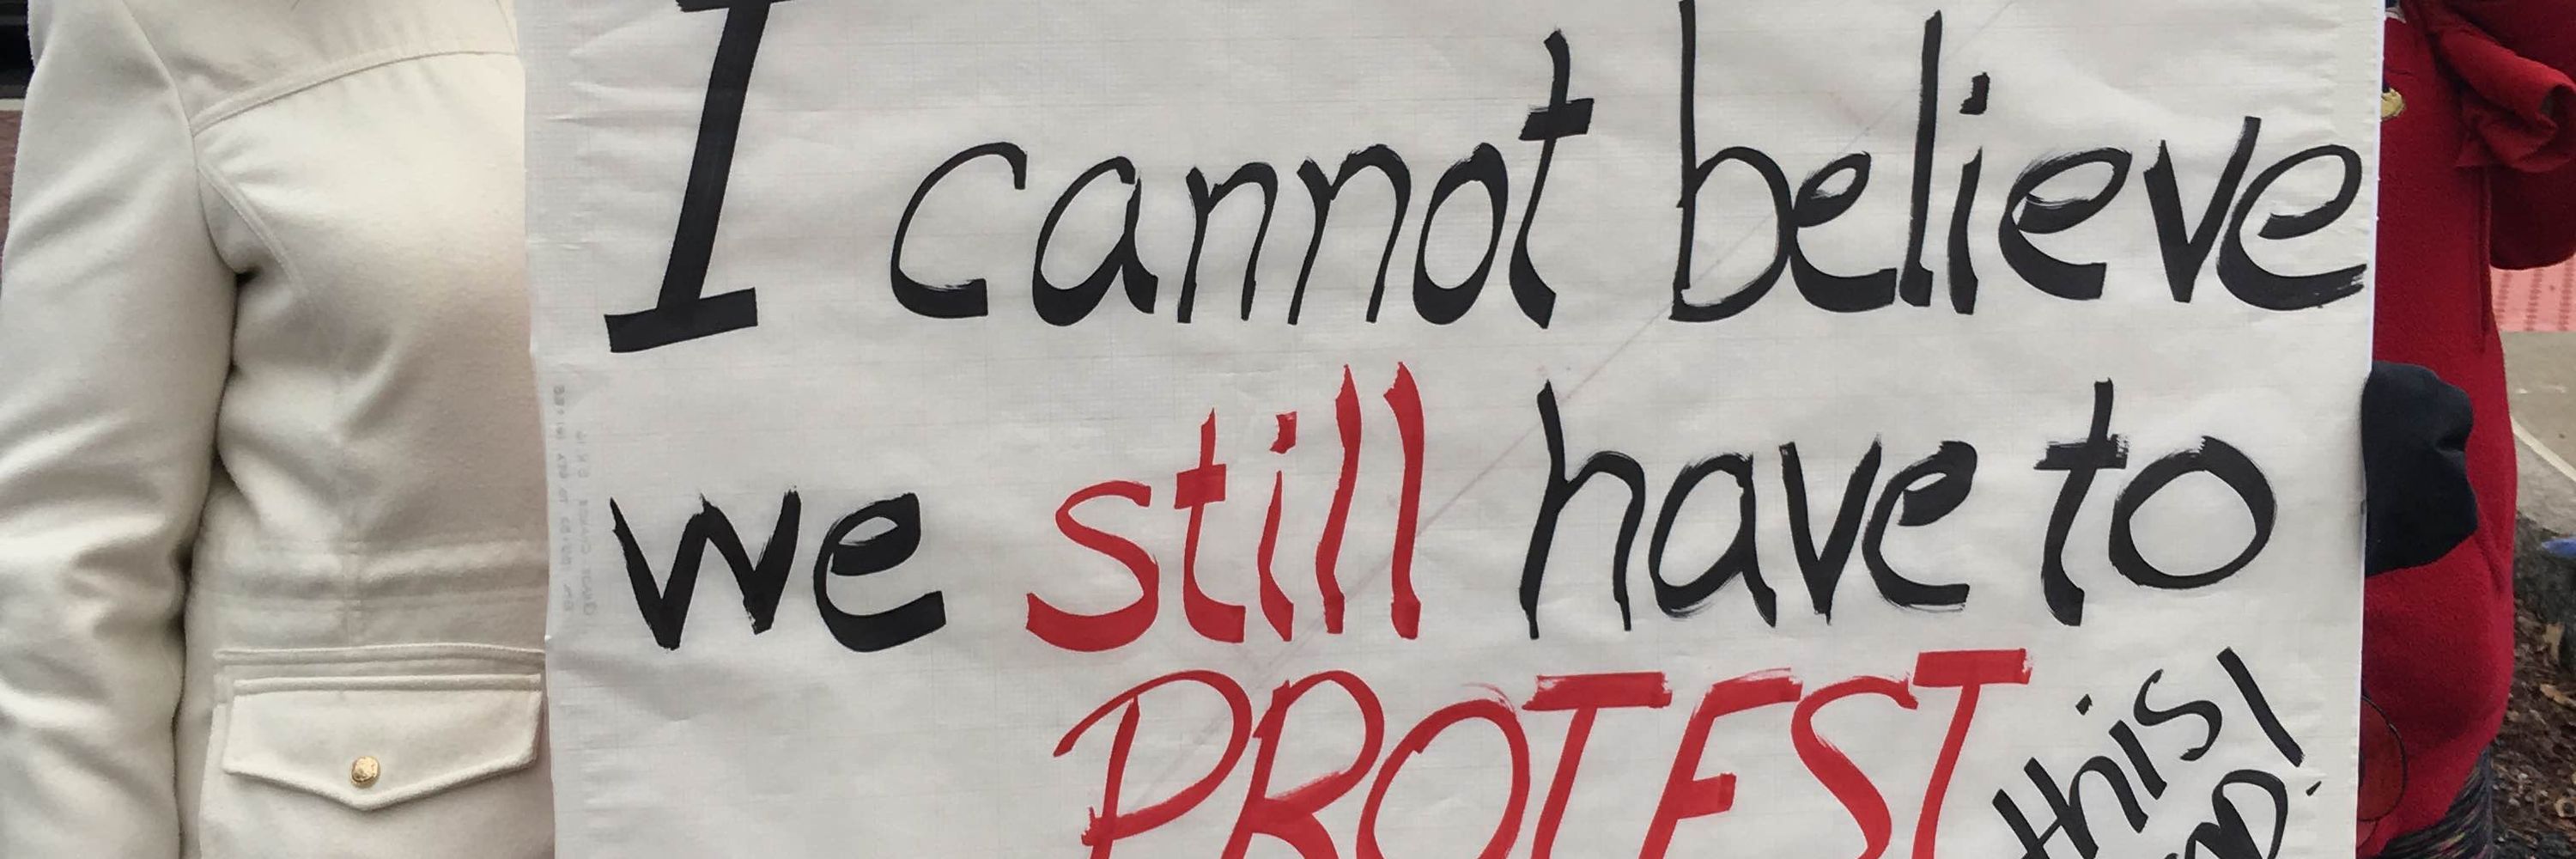 I cannot believe
we still have to
PROTEST
this